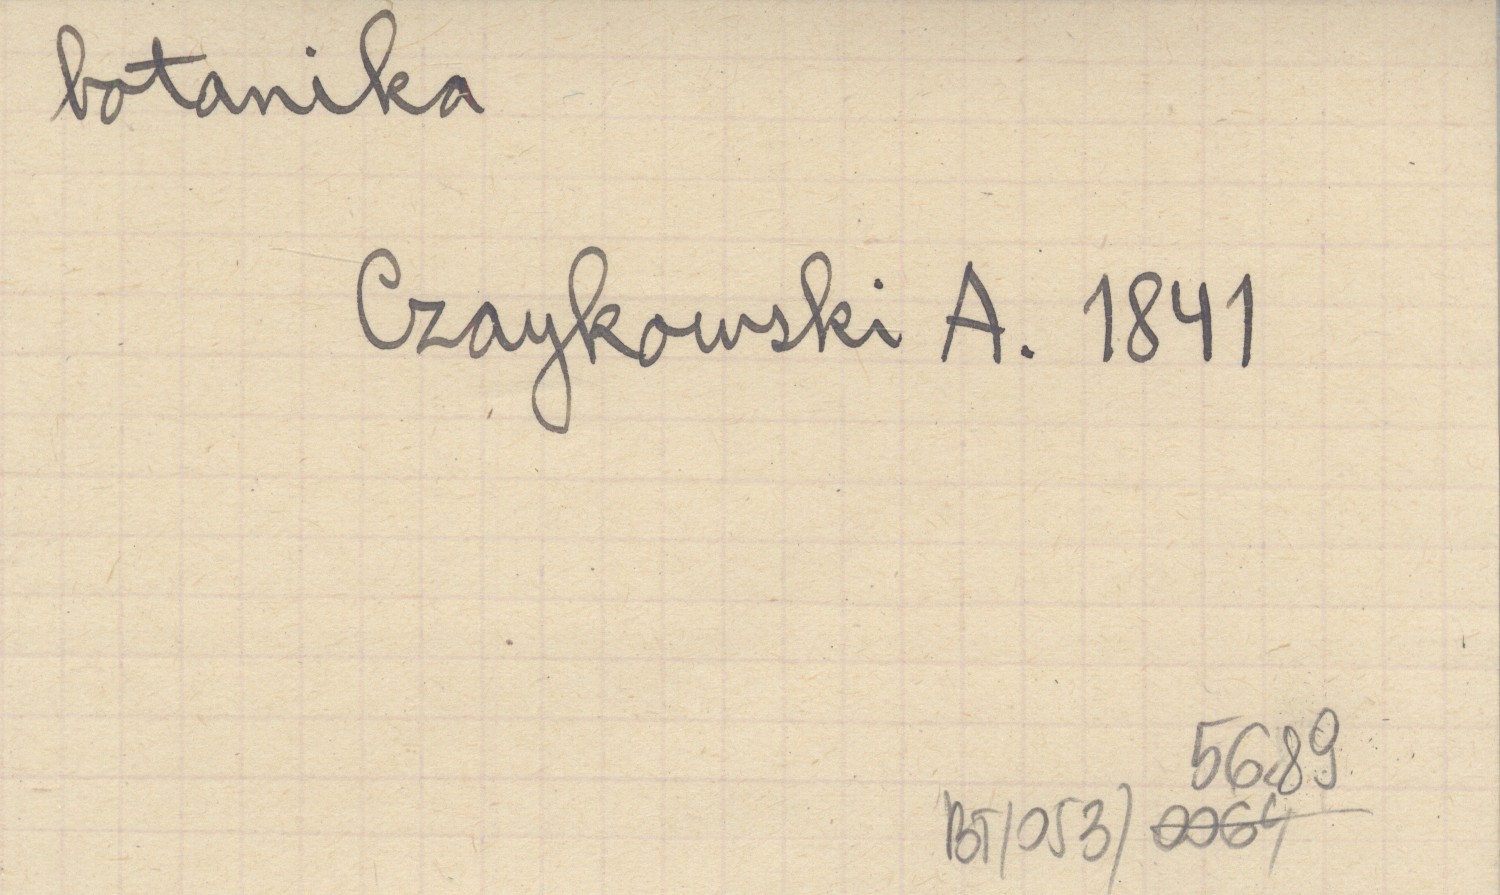 botanika
Czaykowski A. 1841
5689
BT/053/ 0064